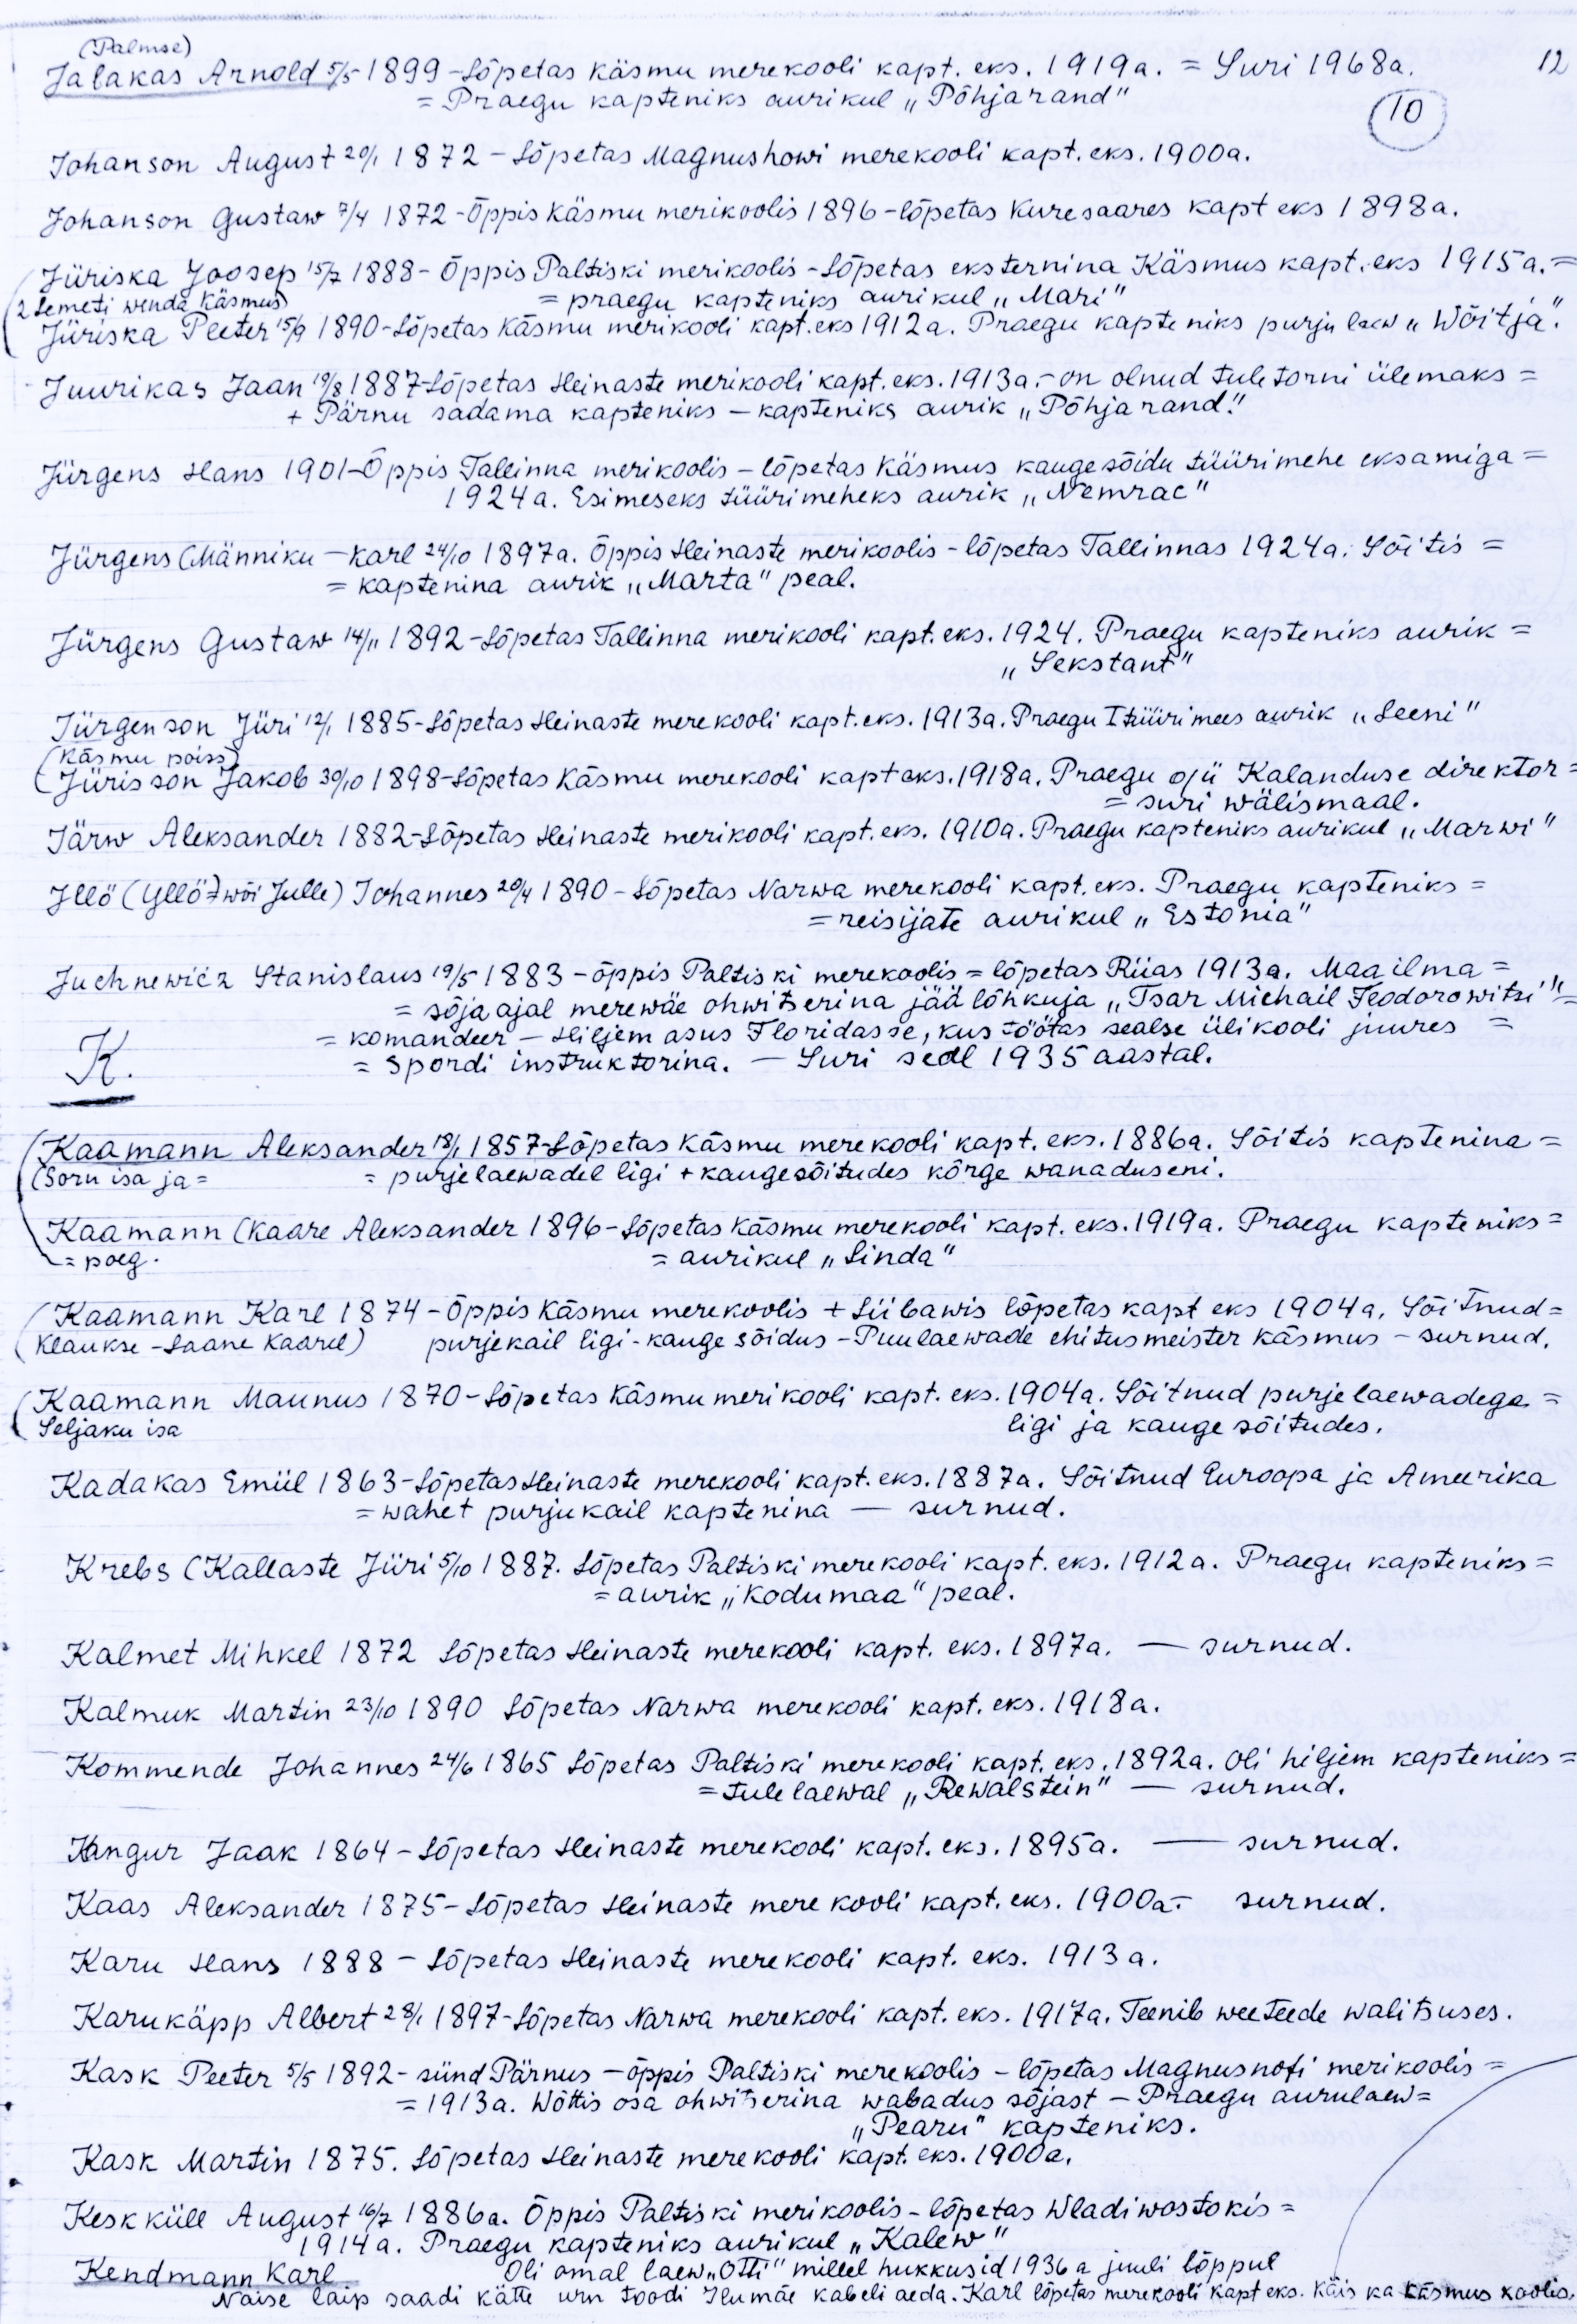 (Palmse)
Jalakas Arnold 5/5 1899 - Lõpetas Käsmu merekooli kapt. eks. 1919a. = Suri 1968a. 12
= Praegu kapteniks aurikul „Põhjarand"
10
Johanson August 20/1 1872 - Lõpetas Magnushowi merekooli kapt. eks. 1900a.
Johanson Gustaw 7/4 1872 - Õppis Käsmu merikoolis 1896 - lõpetas Kuresaares kapt eks 1898a.
(Jüriska Joosep 15/7 1888 - Õppis Paltiski merikoolis - Lõpetas eksternina Käsmus kapt. eks 1915a. =
2 Lemeti wenda Käsmus) = praegu kapteniks aurikul „Mari"
(Jüriska Peeter 15/9 1890 - Lõpetas Käsmu merikooli kapt. eks 1912a. Praegu kapteniks purju laew „Wõitja".
Juurikas Jaan 19/8 1887 - Lõpetas Heinaste merikooli kapt. eks. 1913a. - on olnud tuletorni ülemaks =
+ Pärnu sadama kapteniks - kapteniks aurik „Põhjarand."
Jürgens Hans 1901 - Õppis Tallinna merikoolis - lõpetas Käsmus kauge sõidu tüürimehe eksamiga =
1924a. Esimeseks tüürimeheks aurik „Nemrac"
Jürgens (Männiku - Karl 24/10 1897a. Õppis Heinaste merikoolis - lõpetas Tallinnas 1924a. Sõitis =
= kaptenina aurik „Marta" peal.
Jürgens Gustaw 14/11 1892 - Lõpetas Tallinna merikooli kapt. eks. 1924. Praegu kapteniks aurik =
„Sekstant"
Jürgenson Jüri 12/1 1885 - Lõpetas Heinaste merekooli kapt. eks. 1913a. Praegu I tüürimees aurik „Leeni"
(Käsmu poiss)
(Jürisson Jakob 30/10 1898 - Lõpetas Käsmu merekooli kapt eks. 1918a. Praegu o/ü Kalanduse direktor =
= suri wälismaal.
Järw Aleksander 1882 - Lõpetas Heinaste merikooli kapt. eks. 1910a. Praegu kapteniks aurikul „Marwi"
Jllö (Yllö) wõi Julle) Johannes 20/4 1890 - Lõpetas Narwa merekooli kapt. eks. Praegu kapteniks =
= reisijate aurikul „Estonia"
Juchnewicz Stanislaus 19/5 1883 - õppis Paltiski merekoolis = lõpetas Riias 1913a. Maailma =
= sõja ajal merewäe ohwitserina jää lõhkuja „Tsar Michail Feodorowitsi" =
= komandeer - Hiljem asus Floridasse, kus töötas sealse ülikooli juures =
= spordi instruktorina. - Suri seal 1935 aastal.
K.
(Kaamann Aleksander 18/1 1857 - Lõpetas Käsmu merekooli kapt. eks. 1886a. Sõitis kaptenina =
(Soru isa ja = = purjelaewadel ligi + kaugesõitudes kõrge wanaduseni.
Kaamann (Kaare Aleksander 1896 - Lõpetas Käsmu merekooli kapt. eks. 1919a. Praegu kapteniks =
= poeg. = aurikul „Linda"
(Kaamann Karl 1874 - Õppis Käsmu merekoolis + Liibawis lõpetas kapt eks 1904a. Sõitnud =
(Klaukse - Laane Kaarel) purjekail ligi - kauge sõidus - Puulaewade ehitusmeister Käsmus - surnud.
(Kaamann Maunus 1870 - Lõpetas Käsmu merikooli kapt. eks. 1904a. Sõitnud purjelaewadega =
Seljaku isa ligi ja kauge sõitudes.
Kadakas Emiil 1863 - Lõpetas Heinaste merekooli kapt. eks. 1887a. Sõitnud Euroopa ja Ameerika
= wahet purjukail kaptenina - surnud.
Krebs (Kallaste Jüri 5/10 1887. Lõpetas Paltiski merekooli kapt. eks. 1912a. Praegu kapteniks =
= aurik „Kodumaa" peal.
Kalmet Mihkel 1872 Lõpetas Heinaste merekooli kapt. eks. 1897a. - surnud.
Kalmuk Martin 23/10 1890 Lõpetas Narwa merekooli kapt. eks. 1918a.
Kommende Johannes 24/6 1865 Lõpetas Paltiski merekooli kapt. eks. 1892a. Oli hiljem kapteniks =
= tulelaewal „Rewalstein" - surnud.
Kangur Jaak 1864 - Lõpetas Heinaste merekooli kapt. eks. 1895a. - surnud.
Kaas Aleksander 1875 - Lõpetas Heinaste merekooli kapt. eks. 1900a. - surnud.
Karu Hans 1888 - Lõpetas Heinaste merekooli kapt. eks. 1913a.
Karukäpp Albert 28/1 1897 - Lõpetas Narwa merekooli kapt. eks. 1917a. Teenib weeteede walitsuses.
Kask Peeter 5/5 1892 - sünd Pärnus - õppis Paltiski merekoolis - lõpetas Magnushofi merikoolis =
= 1913a. Wõttis osa ohwitserina wabadus sõjast - Praegu aurulaew =
„Pearu" kapteniks.
Kask Martin 1875. Lõpetas Heinaste merekooli kapt. eks. 1900a.
Keskküll August 16/7 1886a. Õppis Paltiski merikoolis - lõpetas Wladiwostokis =
1914a. Praegu kapteniks aurikul „Kalew"
Kendmann Karl Oli omal laew „Otti" millel hukkusid 1936a juuli lõppul
Naise laip saadi kätte urn toodi Ilumäe kabeli aeda. Karl lõpetas merekooli kapt eks. käis ka Käsmus koolis.